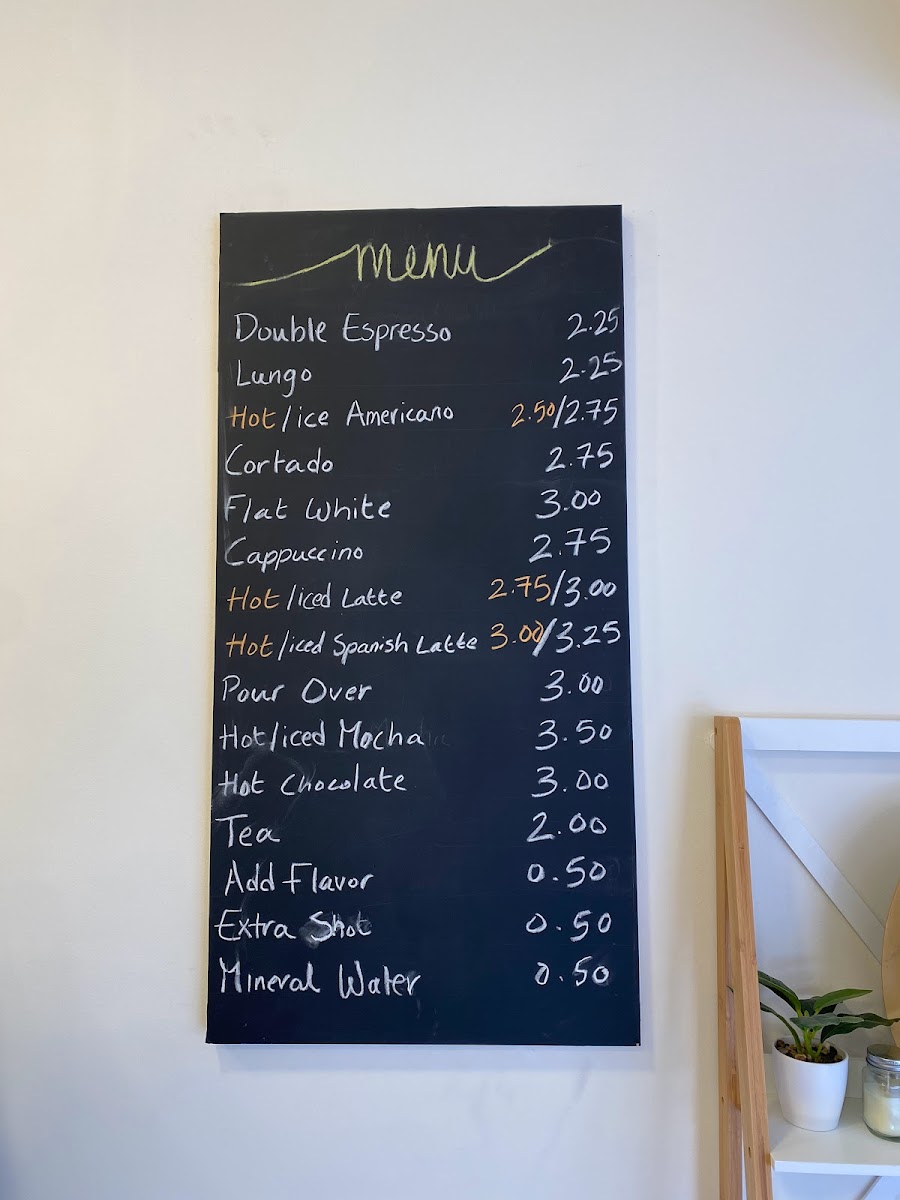 menu
Double Espresso 2.25
Lungo 2.25
Hot/ice Americano 2.50/2.75
Cortado 2.75
Flat White 3.00
Cappuccino 2.75
Hot/iced Latte 2.75/3.00
Hot/iced Spanish Latte 3.00/3.25
Pour Over 3.00
Hot/iced Mocha 3.50
Hot Chocolate 3.00
Tea 2.00
Add Flavor 0.50
Extra Shot 0.50
Mineral Water 0.50